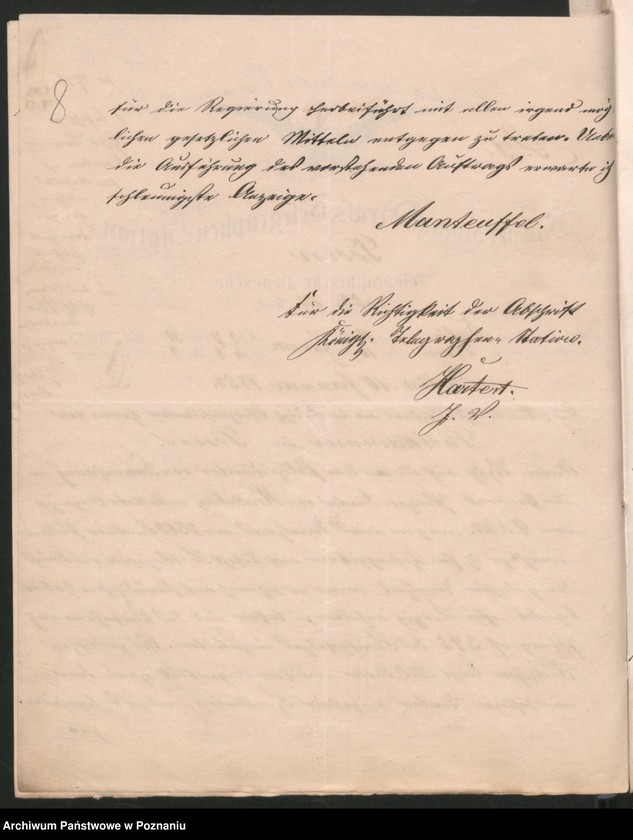 8
für die Regierung herbeiführt mit allen irgend mög
lichen gesetzlichen Mitteln entgegen zu treten. Ueber
die Ausführung des vorstehenden Auftrags erwarte ich
schleunigste Anzeige.
Manteuffel.
Für die Richtigkeit der Abschrift
Königl. Telegraphen-Station.
Hartert.
J. V.
Archiwum Państwowe w Poznaniu